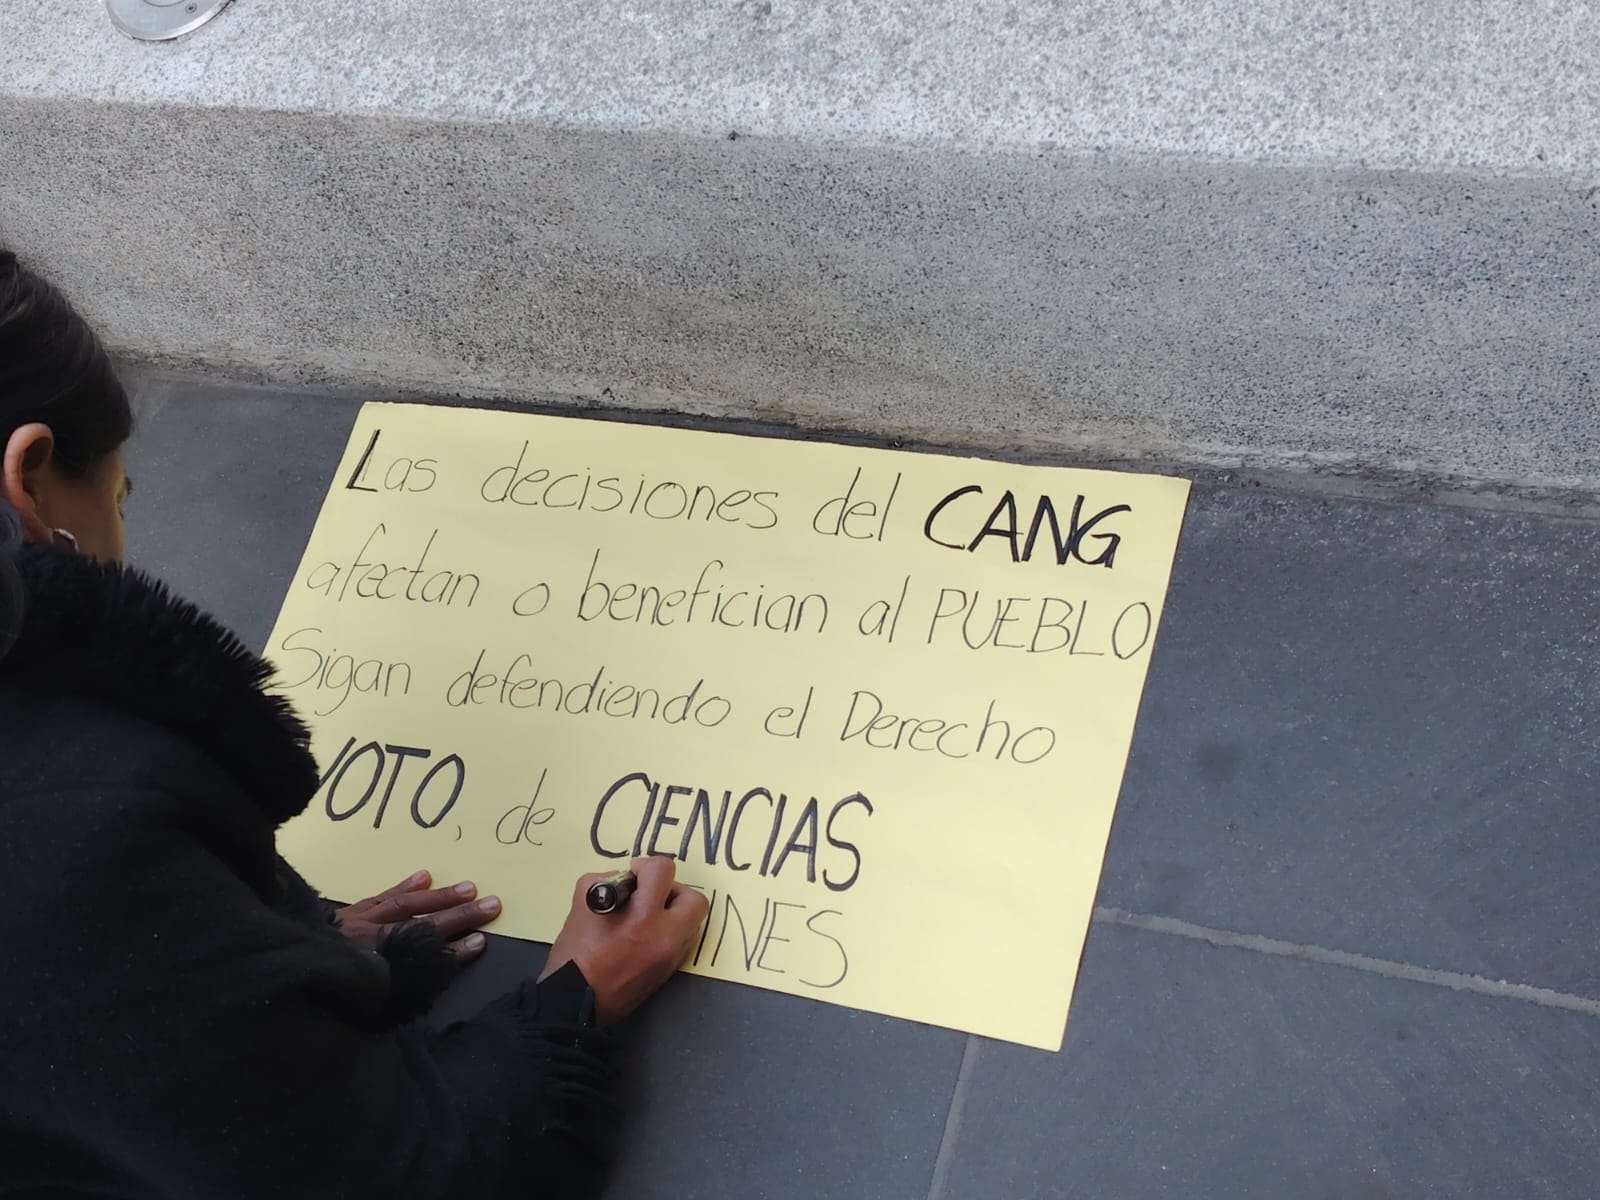 Las decisiones del CANG
afectan o benefician al PUEBLO
Sigan defendiendo el Derecho
VOTO, de CIENCIAS